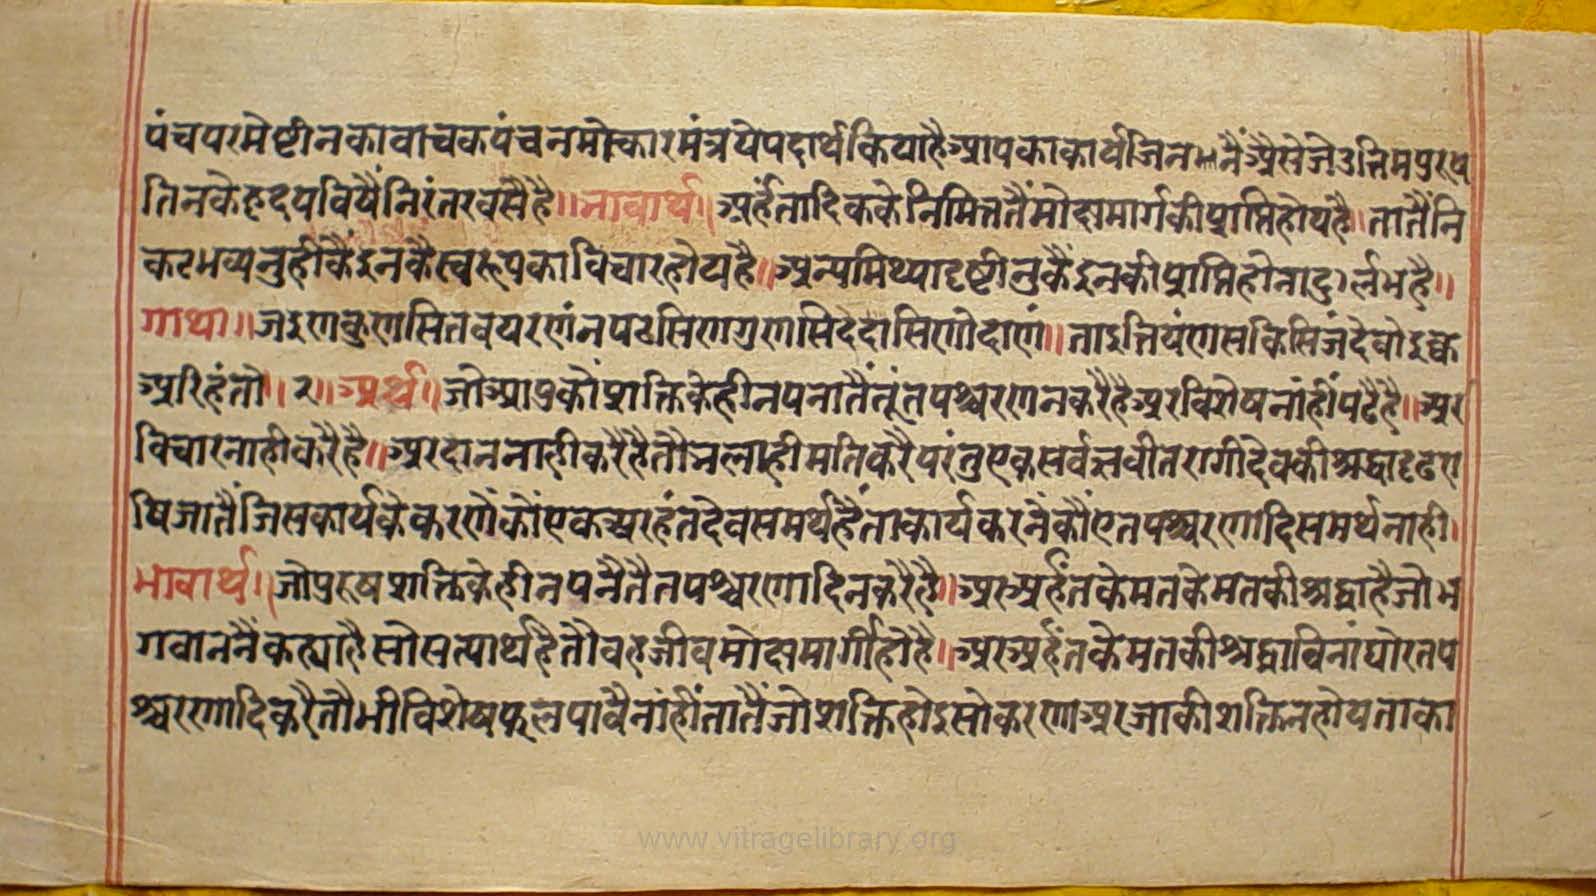 पंचपरमेष्टीनकावाचकपंचनमोकारमंत्रयेपदार्थकियाहैआपकाकार्यजिननैंऐसेजेउत्तिमपुरष
तिनकेहृदयविषैंनिरंतरवसैहै॥भावार्थ॥अर्हंतादिककेनिमित्ततैंमोक्षमार्गकीप्राप्तिहोयहै॥तातैंनि
कटभव्यनुहीकैंइनकैस्वरूपकाविचारहोयहै॥अन्यमिथ्यादृष्टीनुकैंइनकीप्राप्तिहोनादुर्लभहै॥
गाथा॥जइणकुणसितवयरणंनपढसिणगुणसिददासिणोदाणं॥ताइत्तियंणसकिसिजंदेवोइक्क
अरिहंतो॥२॥अर्थ॥जोआपुकोंशक्तिकेहीनपनातैंतूंतपश्चरणनकरैहैअरविशेषनांहींपढैहै॥अर
विचारनाहीकरैहै॥अरदाननाहीकरैहैतौनलाहीमतिकरैपरंतुएकसर्वज्ञवीतरागीदेवकीश्रद्धादृढरा
षिजातैंजिसकार्यकेकरणेंकौंएकअरहंतदेवसमर्थहैंताकार्यकरनेंकौंएतपश्चरणादिसमर्थनाही।
भावार्थ॥जोपुरुषशक्तिकेहीनपनैतैतपश्चरणादिनकरैहै॥अरअर्हंतकेमतकेमतकीश्रद्धाहैजोभ
गवाननैंकह्याहैसोसत्यार्थहैतौवहजीवमोक्षमार्गीहीहै॥अरअर्हंतकेमतकीश्रद्धाविनांघोरतप
श्चरणादिकरैतौभीविशेषफलपावैनांहींतातैंजोशक्तिहोइसोकरणाअरजाकीशक्तिनहोयताका
www.vitragelibrary.org